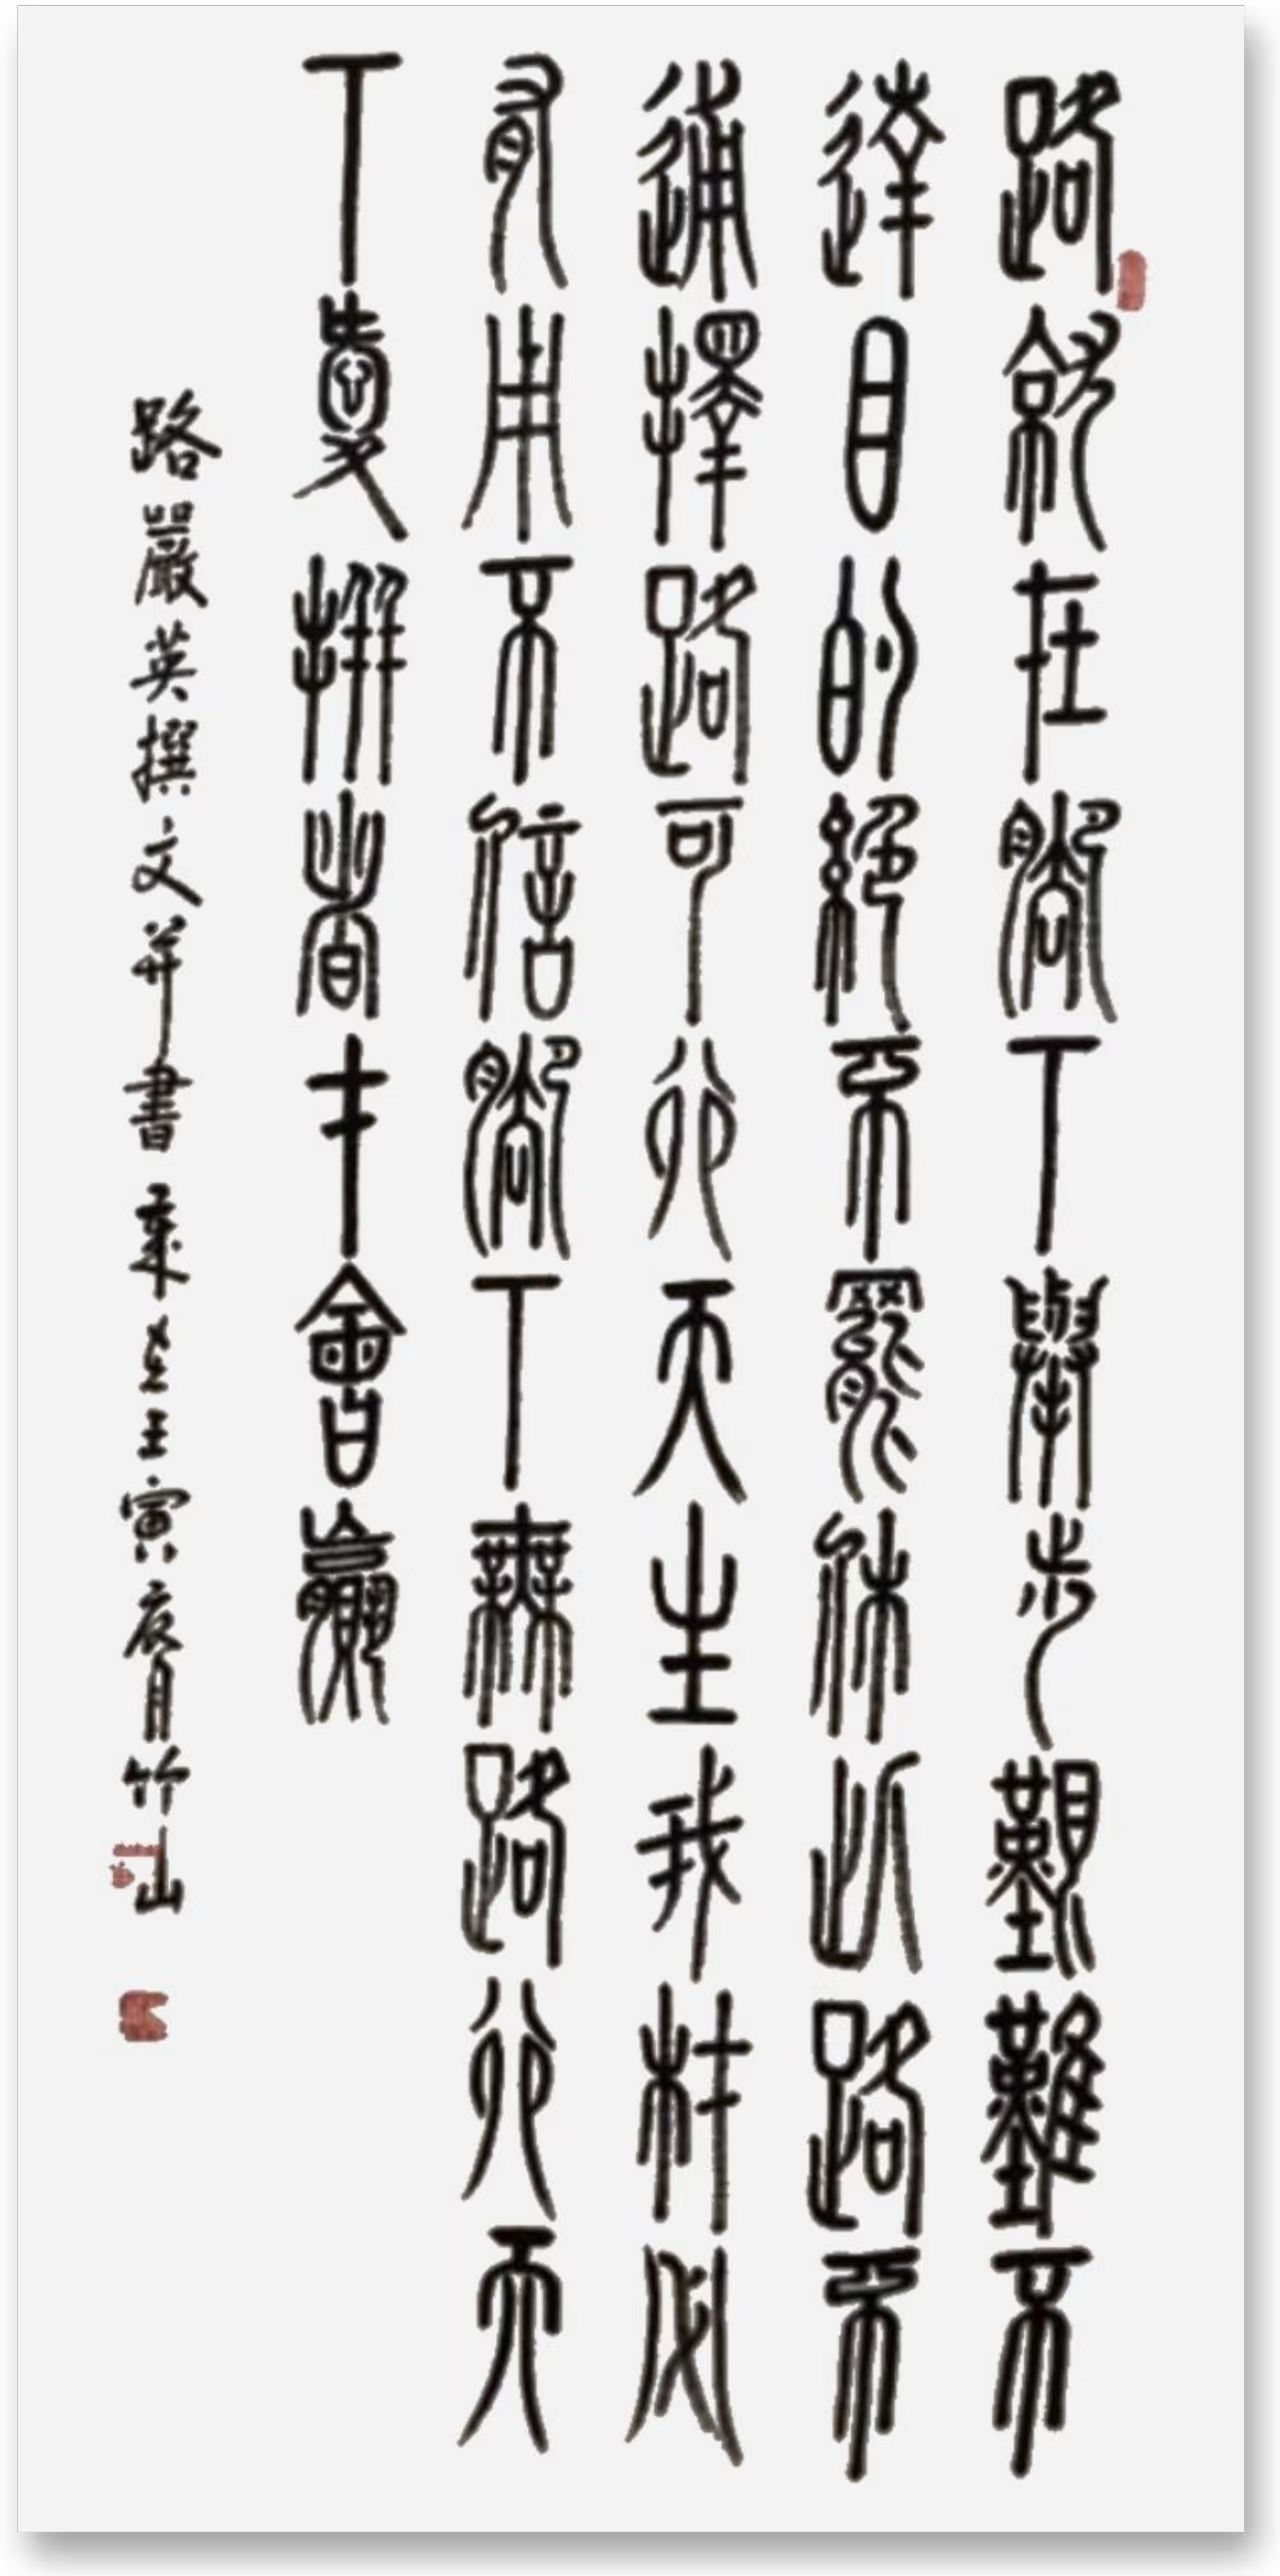 路就在腳下舉步艱難不
達目的絕不罷休此路不
通擇路可行天生我材必
有用不信腳下無路行天
下愛拼者才會贏
路嚴英撰文并書歲在壬寅辰月竹山